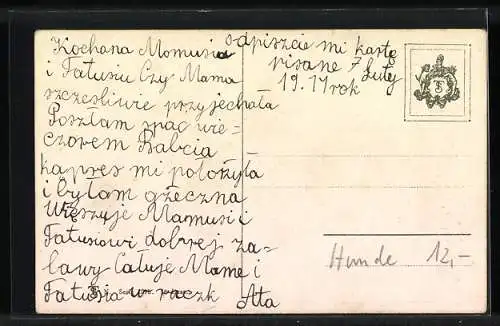 Kochana Momusiu
i Tatusiu Czy Mama
szczesliwie przyjechała
Poszłam spac wie-
czorem Babcia
kapres mi położyła
i byłam grzeczna
Więszuje Mamusi i
Tatusiowi dobrej za-
bawy Całuje Mame i
Tatusia w raczk Ata
odpiszcie mi kartę
pisane 7 Luty
19.11 rok
Hunde 12,-